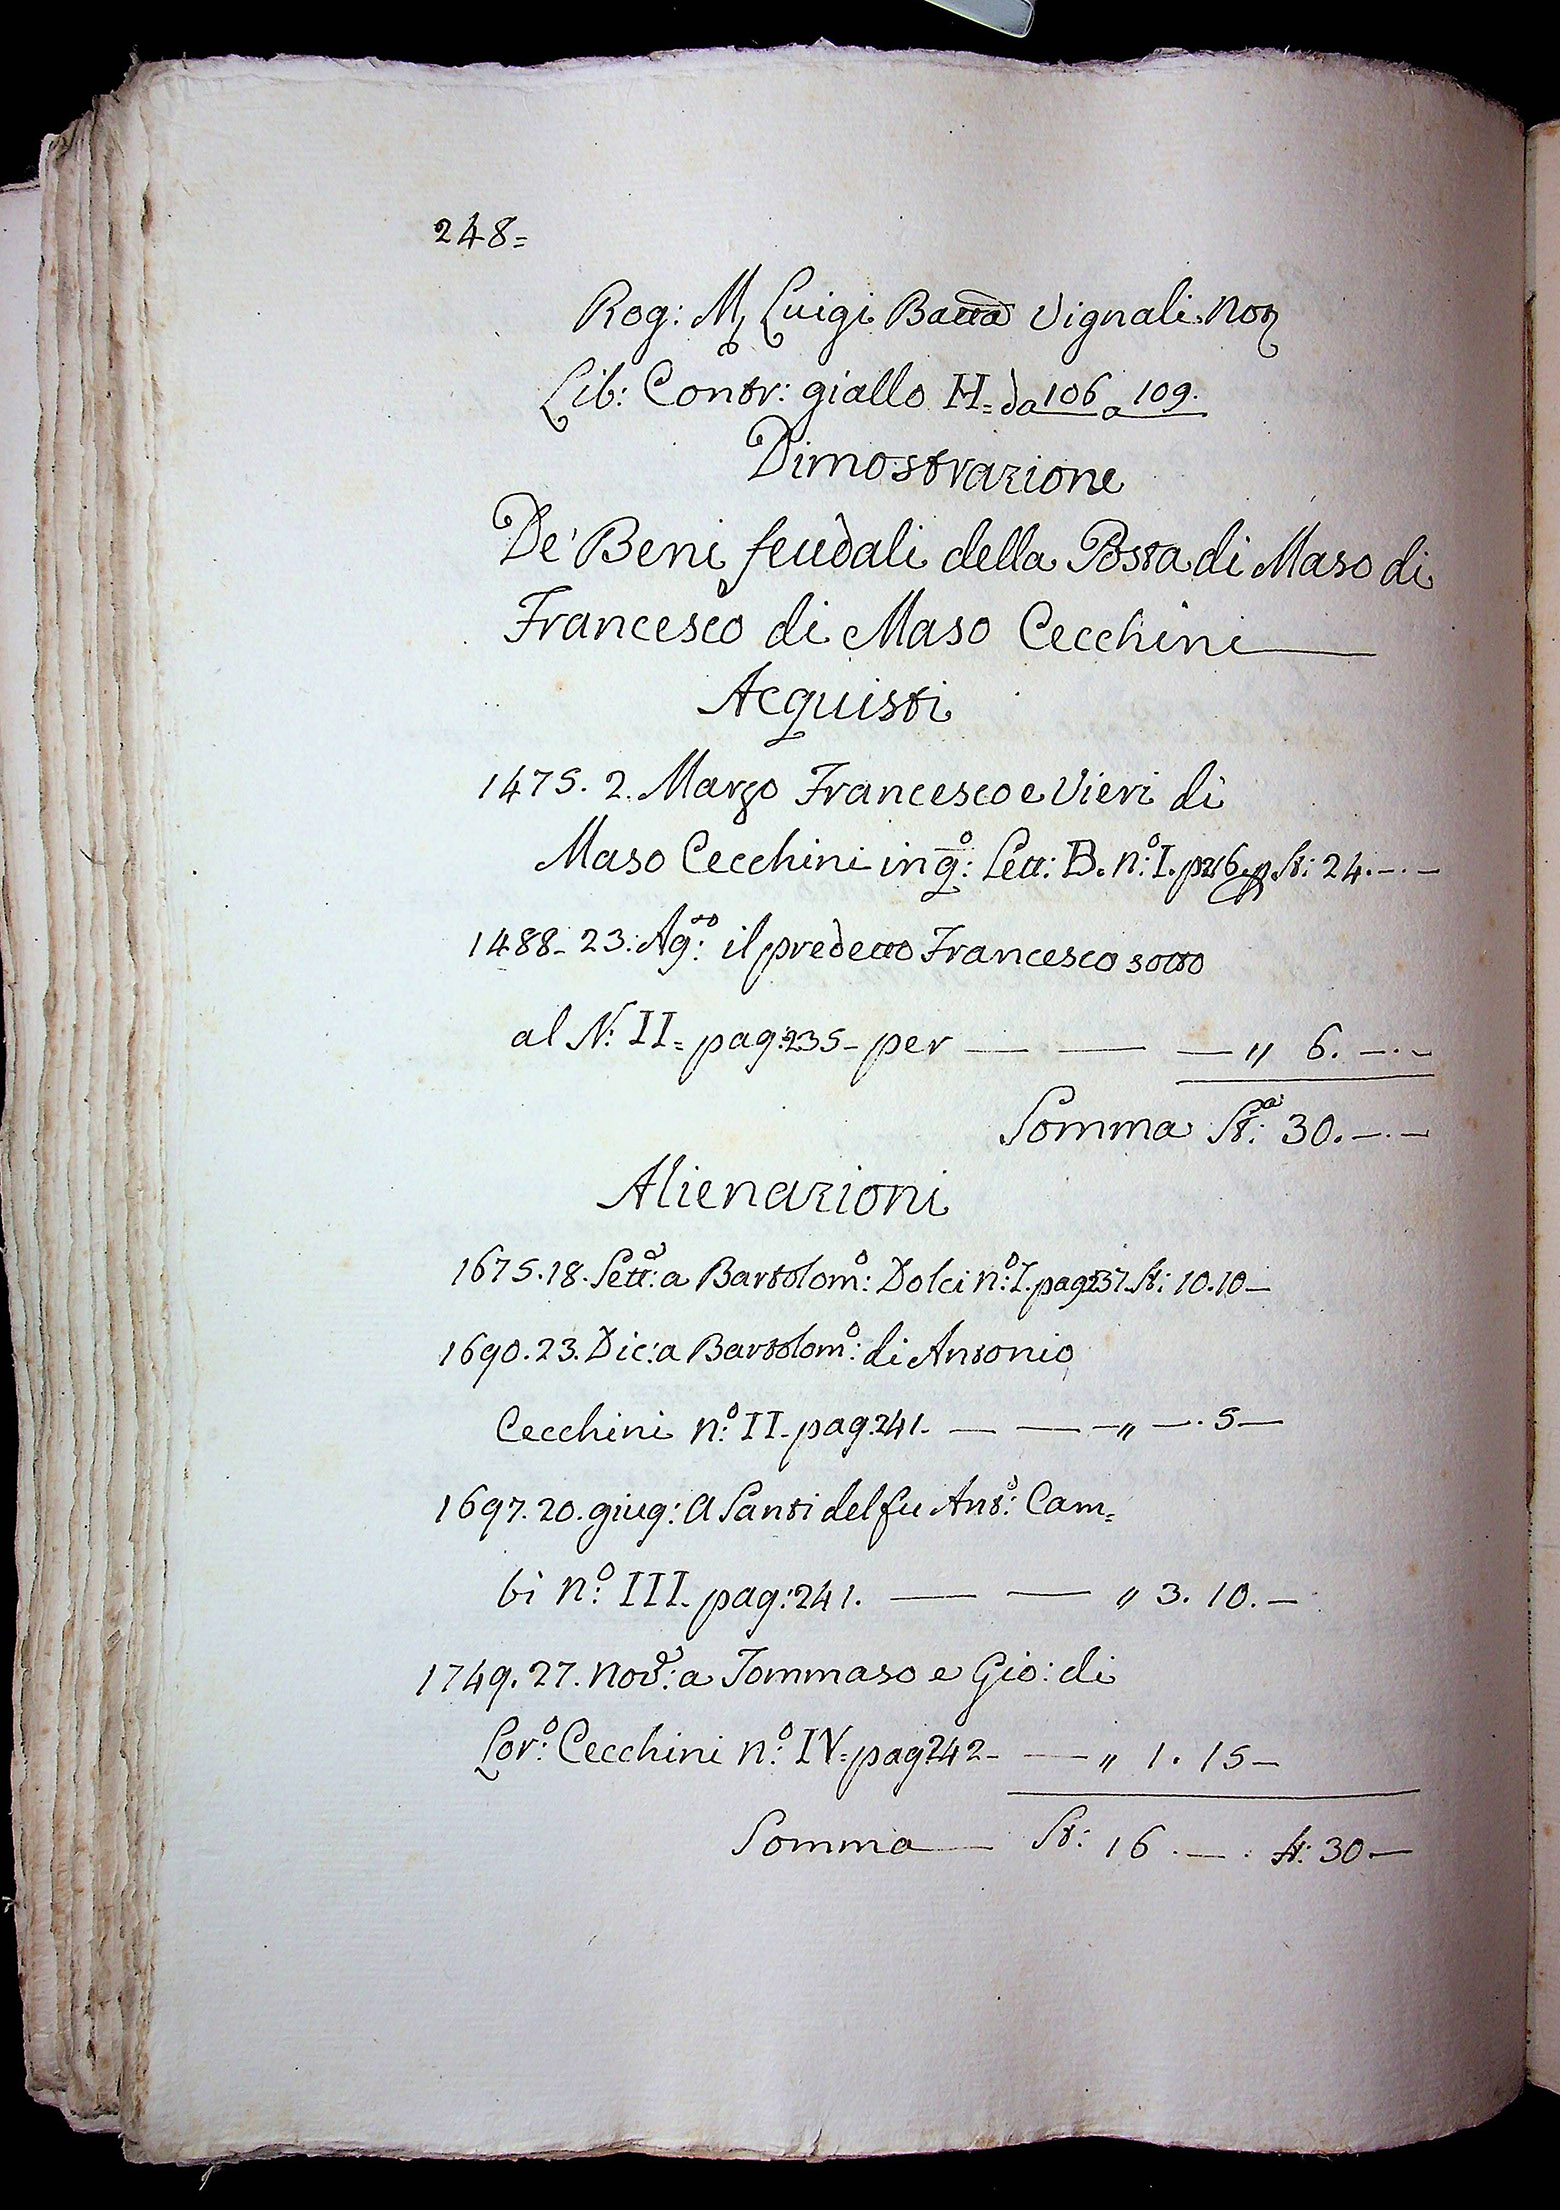 248=
Rog: M. Luigi Batta Vignali Nor
Lib: Contr: giallo H= da 106 a 109.
Dimostrazione
De' Beni feudali della Posta di Maso di
Francesco di Maso Cecchini
Acquisti
1475. 2. Marzo Francesco e Vieri di
Maso Cecchini in qo: Lett: B. no: I. St: 24.-.-
1488- 23: Ag:to il predetto Francesco sotto
al N: II= pag: 235- per — — — " 6. -.-
Somma St:a 30.-.-
Alienazioni
1675.18. Sett:e a Bartolomo: Dolci no: I. pag 237. St: 10.10-
1690.23. Dic: a Bartolomo: di Antonio
Cecchini no: II- pag. 241. — — -" -. 5-
1697. 20. giug: A Santi del fu Anto: Cam=
bi no: III. pag: 241. — — " 3. 10. -
1749. 27. Nove: a Tommaso e Gio: di
Loro: Cecchini no: IV= pag 242- — " 1. 15-
Somma — St: 16. -. St: 30-